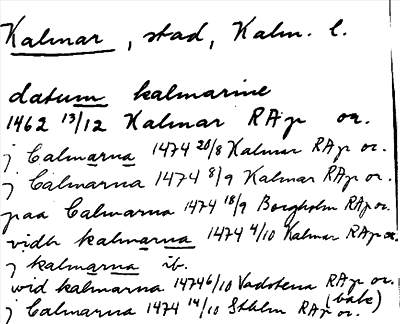 Kalmar, stad, Kalm. l.
datum kalmarine
1462 13/12 Kalmar RAp or.
j Calmarna 1474 20/8 Kalmar RAp or.
j Calmarna 1474 8/9 Kalmar RAp or.
paa Calmarna 1474 18/9 Borgholm RAp or.
vidh kalmarna 1474 4/10 Kalmar RAp or.
j kalmarna ib.
wid kalmarna 1474 6/10 Vadstena RAp or.
j Calmarna 1474 14/10 Sthlm RAp (bakt) or.